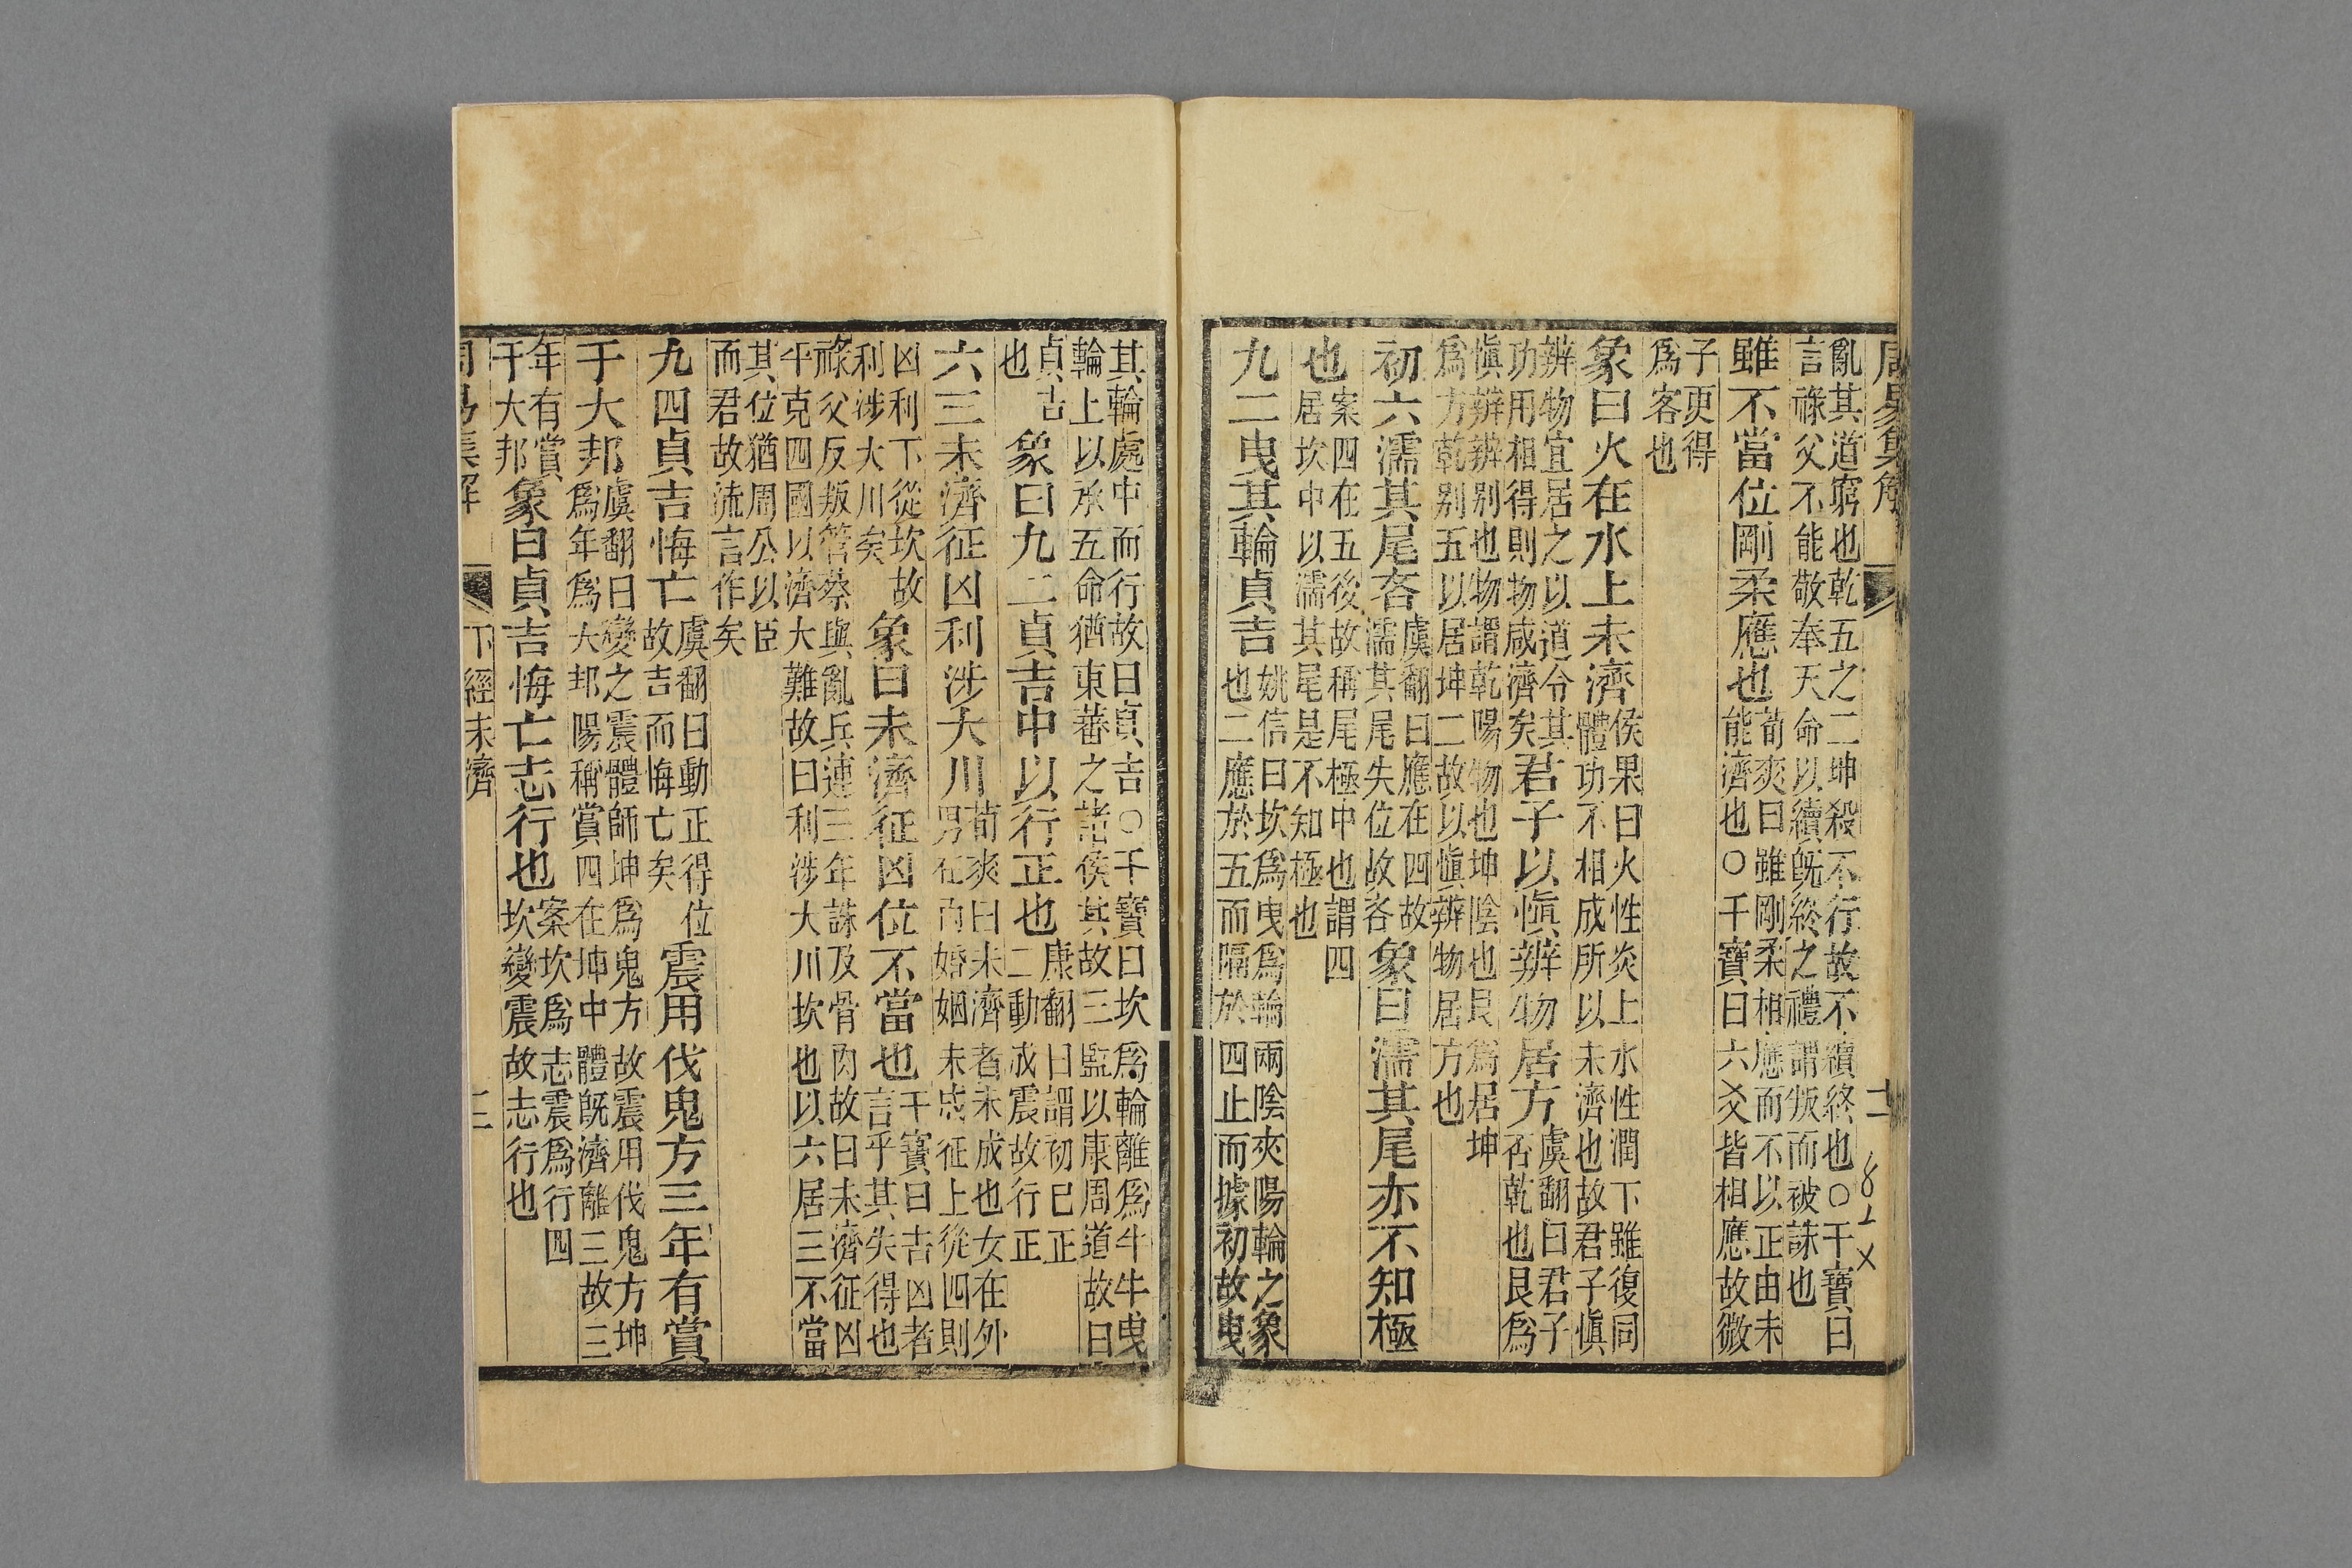 周易集解
亂其道窮也乾五之二坤殺不行故不續終也○干寶曰
言祿父不能敬奉天命以續旣終之禮謂叛而被誅也
雖不當位剛柔應也荀爽曰雖剛柔相應而不以正由未
能濟也○干寶曰六爻皆相應故微
子更得
爲客也
象曰火在水上未濟侯果曰火性炎上水性潤下雖復同
體功不相成所以未濟也故君子愼
辨物宜居之以道令其
功用相得則物咸濟矣君子以愼辨物居方虞翻曰君子
否乾也艮爲
愼辨辨别也物謂乾陽物也坤陰也艮爲居坤
爲方乾别五以居坤二故以愼辨物居方也
初六濡其尾吝虞翻曰應在四故
濡其尾尾失位故吝象曰濡其尾亦不知極
也案四在五後故稱尾極中也謂四
居坎中以濡其尾是不知極也
九二曳其輪貞吉姚信曰坎爲曳爲輪兩陰夾陽輪之象
也二應於五而隔於四止而據初故曳
其輪處中而行故曰貞吉○干寶曰坎爲輪離爲牛牛曳
輪上以承五命猶東蕃之諸侯其故三監以康周道故曰
貞吉
也象曰九二貞吉中以行正也康翻曰謂初巳正
二動成震故行正
六三未濟征凶利涉大川荀爽曰未濟者未成也女在外
男在內婚姻未成征上從四則
凶利下從坎故
利涉大川矣象曰未濟征凶位不當也干寶曰吉凶者
言乎其失得也
祿父反叛管蔡與亂兵連三年誅及骨肉故曰未濟征凶
平克四國以濟大難故曰利涉大川坎也以六居三不當
其位猶周公以臣
而君故流言作矣
九四貞吉悔亡虞翻曰動正得位
故吉而悔亡矣震用伐鬼方三年有賞
于大邦虞翻曰變之震體師坤爲鬼方故震用伐鬼方坤
爲年爲大邦陽稱賞四在坤中體旣濟離三故三
年有賞
于大邦象曰貞吉悔亡志行也案坎爲志震爲行四
坎變震故志行也
周易集解 下經未濟